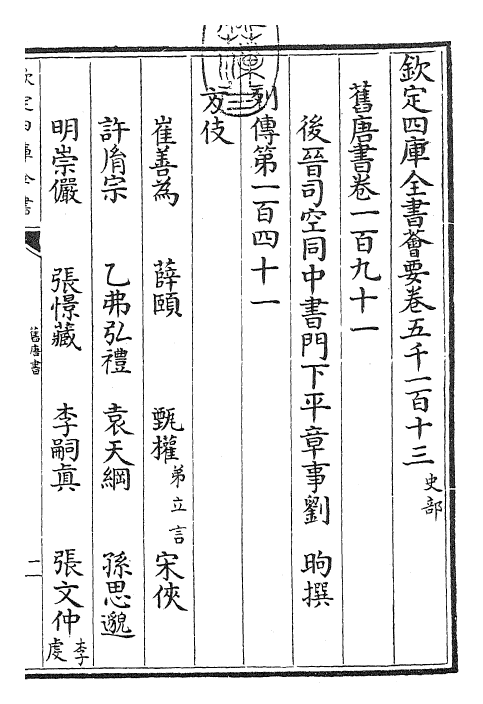 欽定四庫全書薈要卷五千一百十三 史部
舊唐書卷一百九十一
後晉司空同中書門下平章事劉 昫撰
列傳第一百四十一
方伎
崔善為 薛頤 甄權弟立言 宋俠
許胤宗 乙弗弘禮 袁天綱 孫思邈
明崇儼 張憬藏 李嗣真 張文仲李虔
欽定四庫全書
舊唐書
二